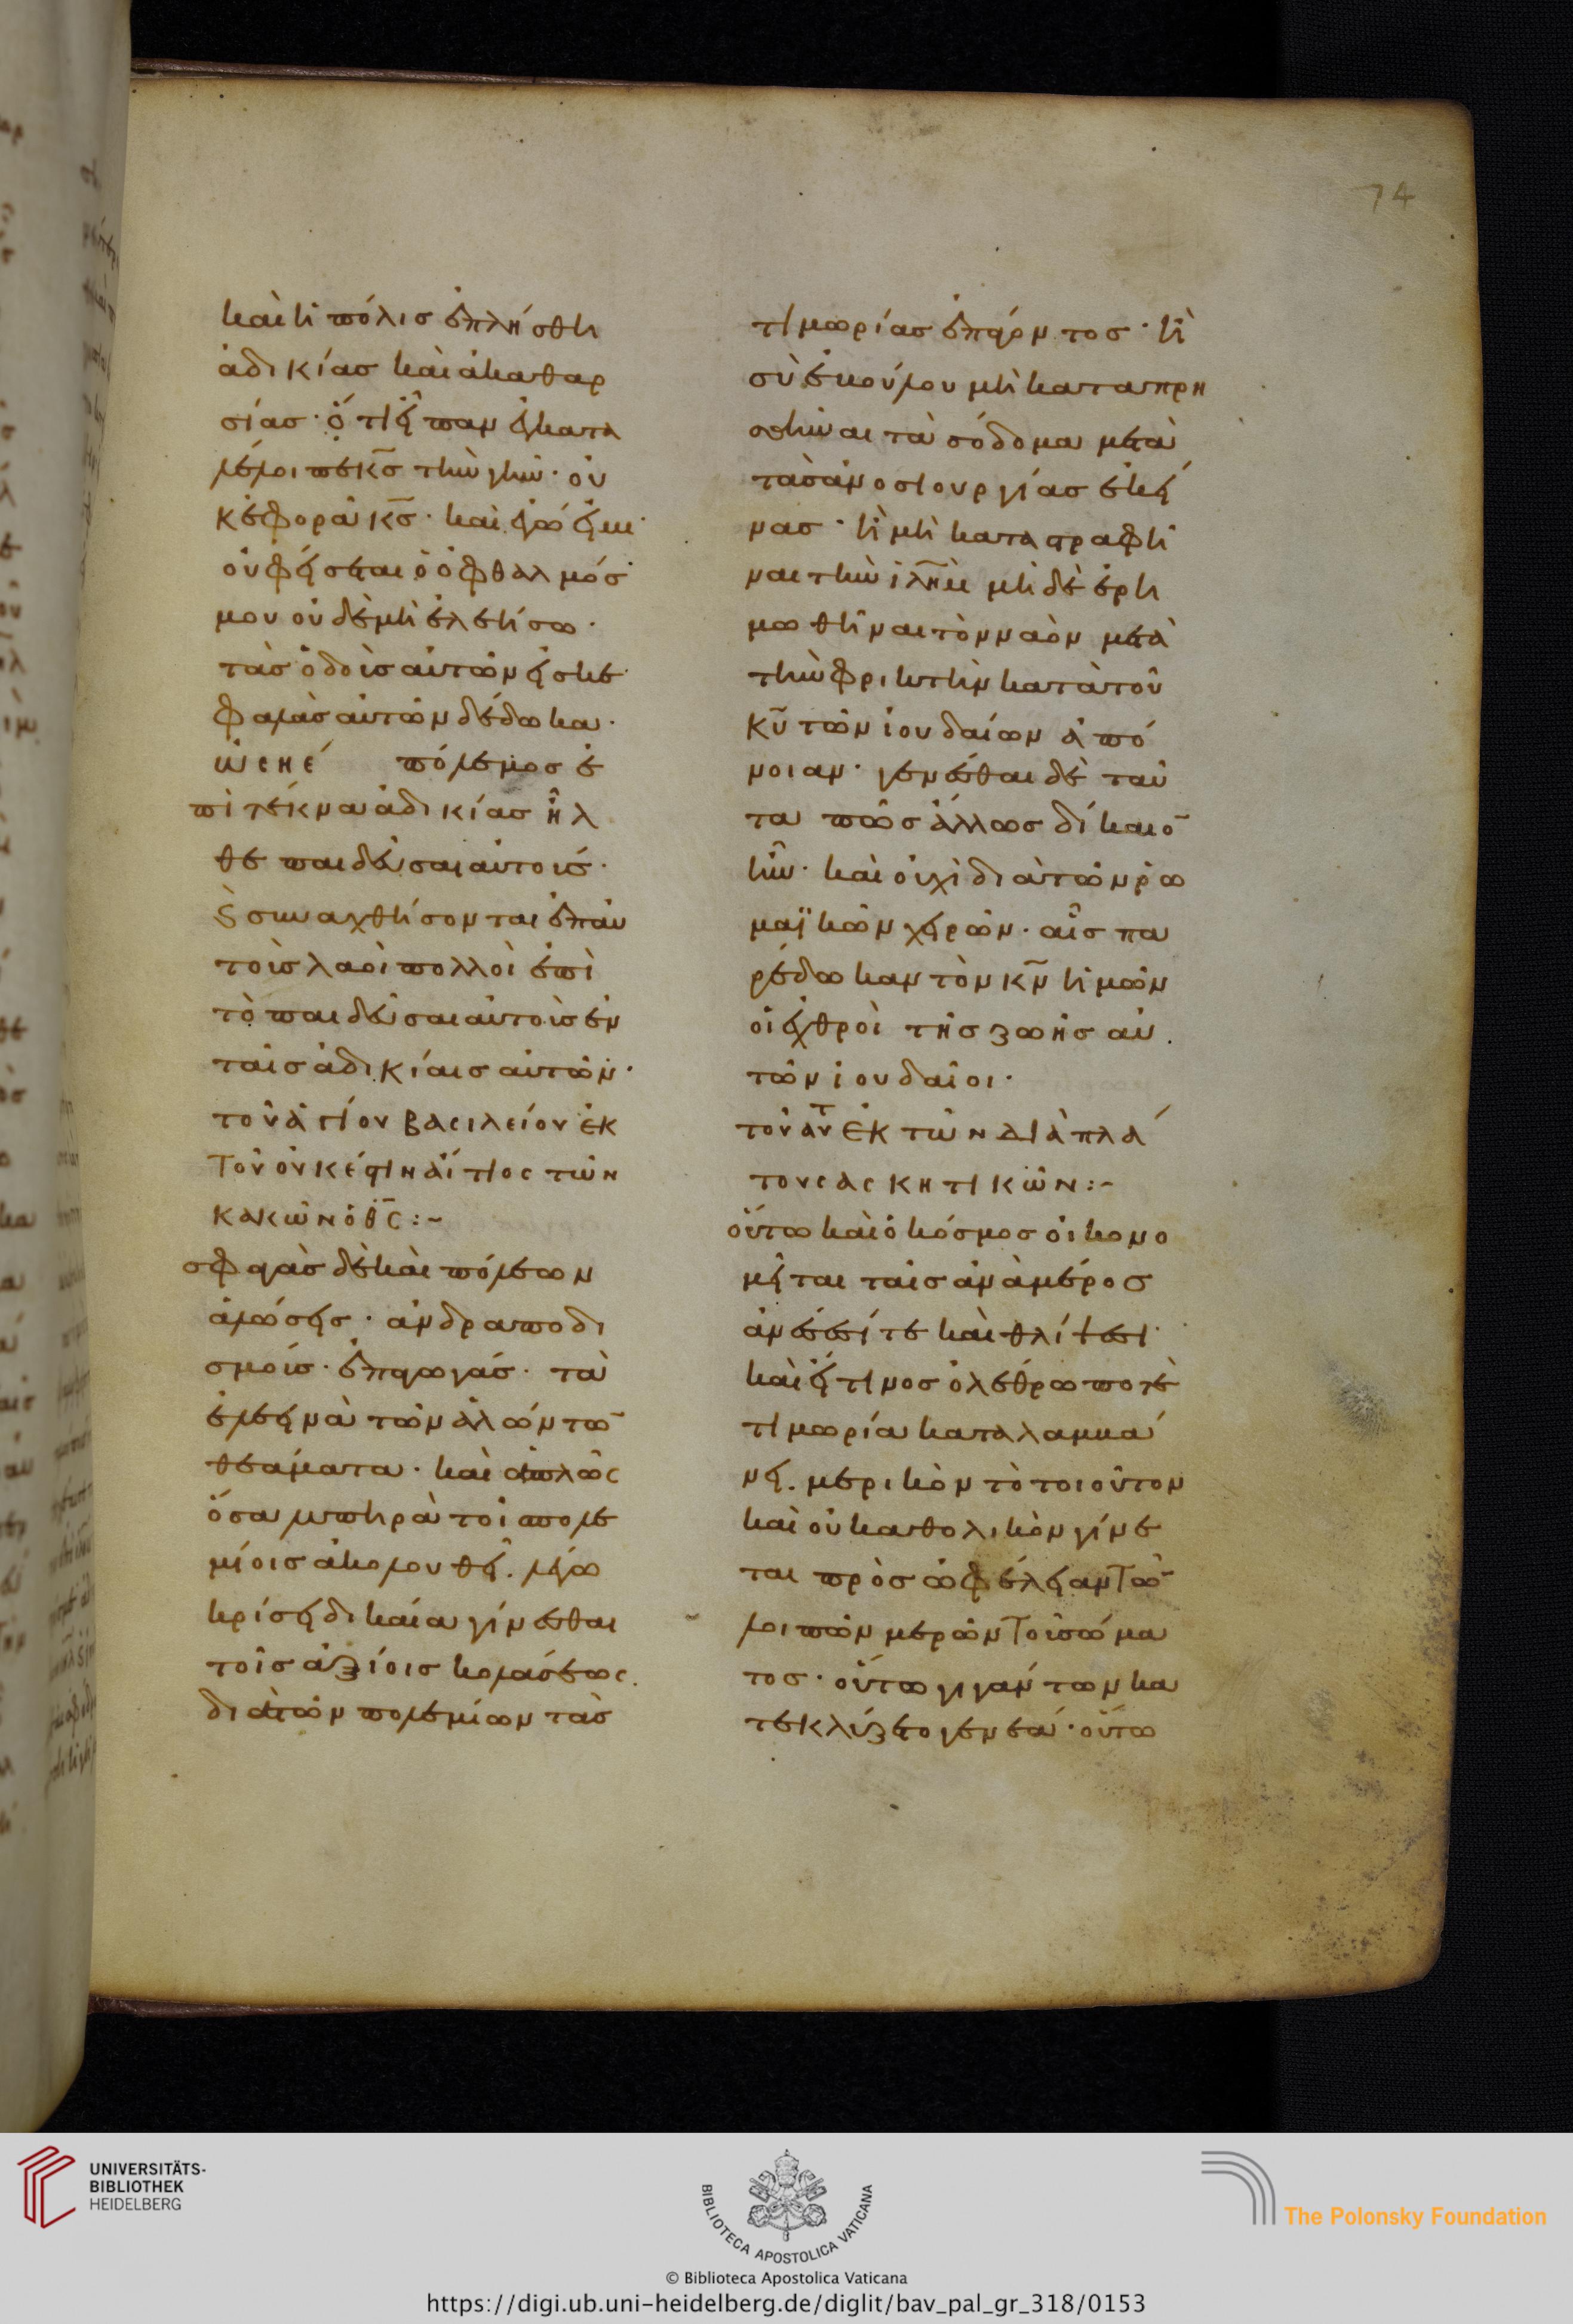 καὶ ἡ πόλις ἐπλήσθη
ἀδικίας καὶ ἀκαθαρ
σίας· ὅτι εἶπαν ἐγκατα
λέλοιπε κ̅ς̅ τὴν γῆν· οὐ
κ ἐφορᾶ κ̅ς̅· καὶ ἐγώ εἰμι·
οὐ φείσεται ὁ ὀφθαλμός
μου οὐδὲ μὴ ἐλεήσω·
τὰς ὁδοὺς αὐτῶν εἰς κε
φαλὰς αὐτῶν δέδωκα·
ὡσηέ πόλεμος ἐ
πὶ τέκνα ἀδικίας ἦλ
θε παιδεῦσαι αὐτούς·
ϗ συναχθήσονται ἐπ' αὐ
τοὺς λαοὶ πολλοὶ ἐπὶ
τὸ παιδεῦσαι αὐτοὺς ἐν
ταῖς ἀδικίαις αὐτῶν·
τοῦ ἁγίου βασιλείου ἐκ
τοῦ οὐκ ἔστιν αἴτιος τῶν
κακῶν ὁ θ̅ς̅:-
σφαγὰς δὲ καὶ πόλεων
ἁλώσεις· ἀνδραποδι
σμούς· ἐπαγωγάς· τὰ
ἐλεεινὰ τῶν ἁλόντω̅
θεάματα· καὶ ἁπλῶς
ὅσα λυπηρὰ τοῖ πολε
μίοις ἀκολουθεῖ. λέγω
κρίσει δικαία γίνεσθαι
τοῖς ἀξίοις κολάσεως.
διὰ τῶν πολεμίων τὰς
74
τιμωρίας ἐπάγοντος· ἢ
σὺ ἐβούλου μὴ καταπρη
σθῆναι τὰ σόδομα μετὰ
τὰς ἀνοσιουργίας ἐκεί
νας· ἢ μὴ καταστραφῆ
ναι τὴν ἰλη̅μ̅ μὴ δὲ ἐρη
μωθῆναι τὸν ναὸν μετὰ
τὴν φρικτὴν κατὰ τοῦ
κ̅υ̅ τῶν ἰουδαίων ἀπό
νοιαν· γενέσθαι δὲ ταῦ
τα πῶς ἄλλως δίκαιο̅
ἦν· καὶ οὐχὶ διὰ τῶν ῥω
μαϊκῶν χειρῶν· αἷς πα
ρέδωκαν τὸν κ̅ν̅ ἡμῶν
οἱ ἐχθροὶ τῆς ζωῆς αὐ
τῶν ἰουδαῖοι·
τοῦ αὐτ ἐκ τῶν διὰ πλά
τους ἀσκητικῶν:-
οὕτω καὶ ὁ κόσμος οἰκονο
μεῖται ταῖς ἀνὰ μέρος
ἀνέσεσί τε καὶ θλίψεσι·
καὶ εἴ τινος ὀλέθρω ποτὲ
τιμωρία καταλαμβά
νει. μερικὸν τὸ τοιοῦτον
καὶ οὐ καθολικὸν γίνε
ται πρὸς ὠφέλειαν τῶ̅
λοιπῶν μερῶν τοῦ σώμα
τος· οὕτω γιγάντων κα
τεκλύζετο γενεά· οὕτω
UNIVERSITÄTS-
BIBLIOTHEK
HEIDELBERG
BIBLIOTECA APOSTOLICA VATICANA
The Polonsky Foundation
© Biblioteca Apostolica Vaticana
https://digi.ub.uni-heidelberg.de/diglit/bav_pal_gr_318/0153